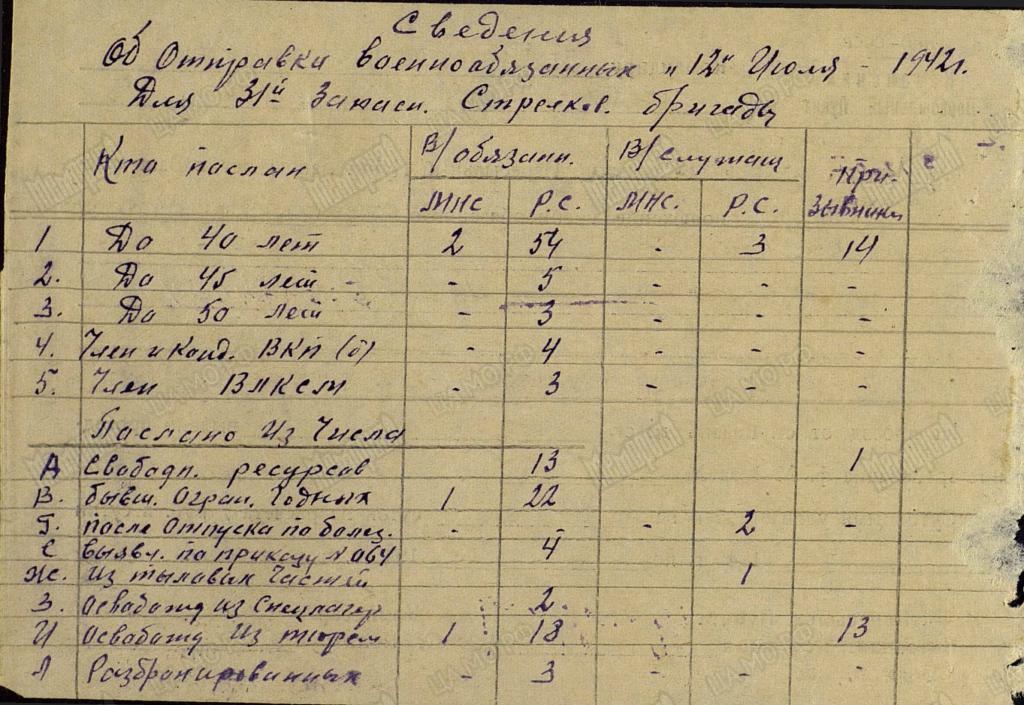 Сведения
Об Отправки военнообязанных "12" Июля - 1942г.
Для 31й Запасн. Стрелков. бригады
Кто паслан В/обязанн. В/служащ При-
зывники
МНС Р.С. МНС. Р.С.
1 До 40 лет 2 54 - 3 14
2. До 45 лет - - 5 - - -
3. До 50 лет - 3 - - -
4. Член и Канд. ВКП (б) - 4 - - -
5. Член ВЛКСМ - 3 - - -
Паслано Из Числа
А Свабадн. ресурсов 13 1
В. бывш. Огран. Годных 1 22
Г. после Отпуска по балез. - - 2 -
С выявл. по приказу № 064 4
Ж. Из тылавых Частей 1
З. Асвабажд из Спецлагер 2
И Асвабажд Из тюрем 1 18 13
Л Разбронированных - 3 - -